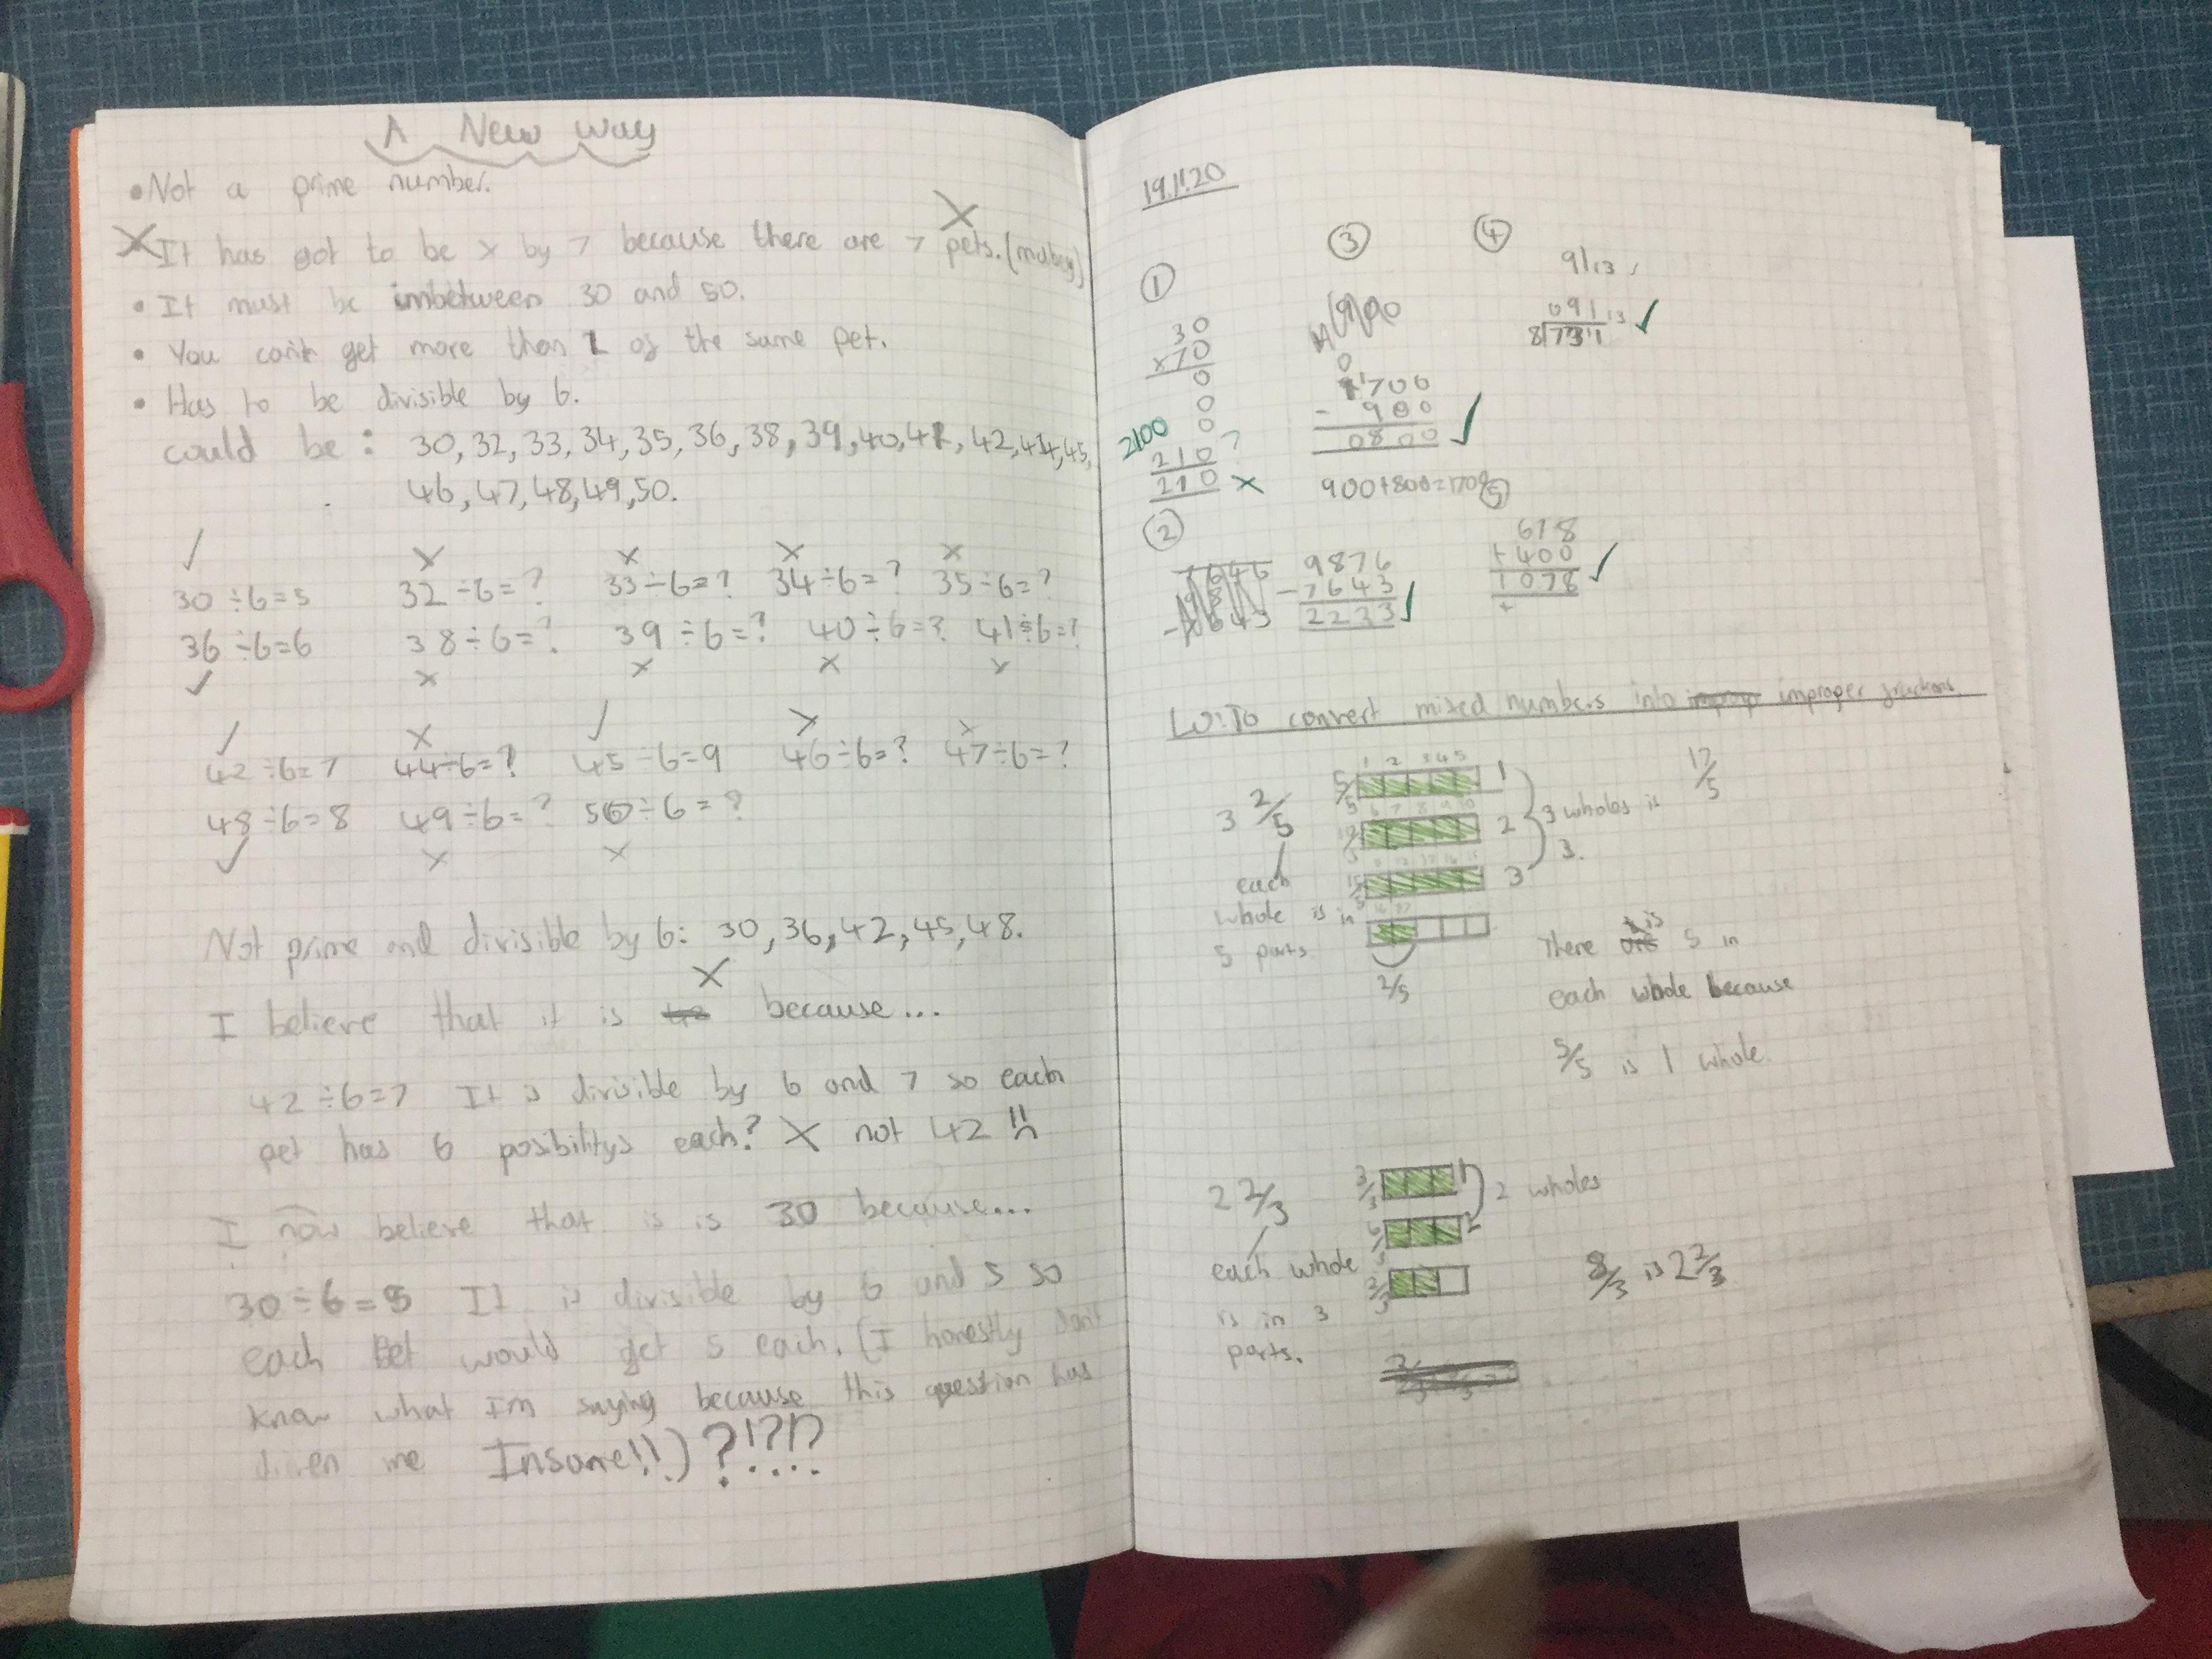 A New way
• Not a prime number.
X It has got to be x by 7 because there are 7 pets. (mabey)
X
• It must be imbetween 30 and 50.
• You can't get more than 1 of the same pet.
• Has to be divisible by 6.
could be: 30, 32, 33, 34, 35, 36, 38, 39, 40, 41, 42, 44, 45,
46, 47, 48, 49, 50.
✓ X X X X
30 ÷ 6 = 5 32 ÷ 6 = ? 33 ÷ 6 = ? 34 ÷ 6 = ? 35 ÷ 6 = ?
36 ÷ 6 = 6 38 ÷ 6 = ? 39 ÷ 6 = ? 40 ÷ 6 = ? 41 ÷ 6 = ?
✓ X X X X
✓ X ✓ X X
42 ÷ 6 = 7 44 ÷ 6 = ? 45 ÷ 6 = 9 46 ÷ 6 = ? 47 ÷ 6 = ?
48 ÷ 6 = 8 49 ÷ 6 = ? 50 ÷ 6 = ?
✓ X X
Not prime and divisible by 6: 30, 36, 42, 45, 48.
X
I believe that it is 42 because...
42 ÷ 6 = 7 It is divisible by 6 and 7 so each
pet has 6 posibilitys each? X not 42 !!
I now believe that is is 30 because...
30 ÷ 6 = 5 It is divisible by 6 and 5 so
each pet would get 5 each. (I honestly don't
know what I'm saying because this question has
driven me Insane!!) ?!?!?
19.11.20
①
30
x70
0
0
0
2100
210 ?
210 X
②
9876
- 7643
2233 ✓
③
0
1700
- 900
0800 ✓
900+800=1700
④
91 r3
091 r3 ✓
8 731
⑤
678
+ 400
1078 ✓
+
LO: To convert mixed numbers into improper fractions.
3 2/5
each
whole is in
5 parts
1 2 3 4 5
5/5 1
6 7 8 9 10
10/5 2
15/5 3
16 17
2/5
3 wholes is
3.
17/5
There is 5 in
each whole because
5/5 is 1 whole.
2 2/3
each whole
is in 3
parts.
3/3 1
6/3 2
2/3
2 wholes
8/3 is 2 2/3